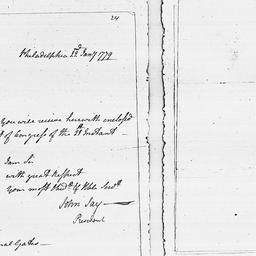 24
Philadelphia Jany 1779
You will receive herewith enclosed
t of Congress of the Instant —
I am Sir
with great Respect
your most Obdt & Hble Servt
John Jay —
President
ral Gates —